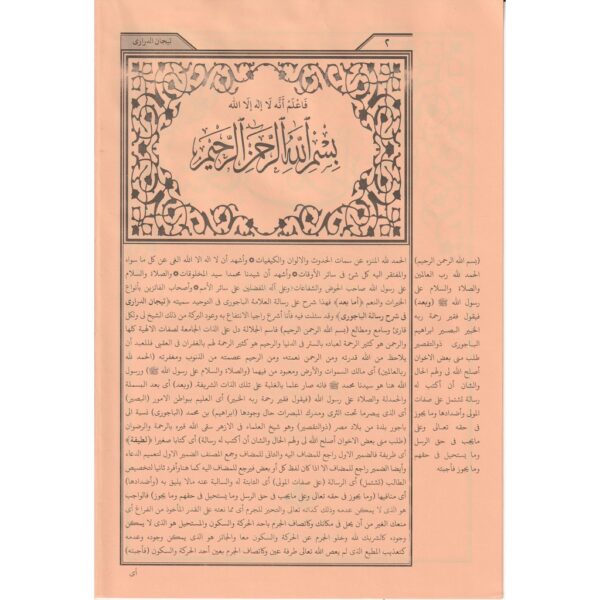 تيجان الدراري
٢
فَاعْلَمْ أَنَّهُ لَا إِلٰهَ إِلَّا اللّٰه
بِسْمِ اللَّهِ الرَّحْمَنِ الرَّحِيمِ
الحمد لله المنزه عن سمات الحدوث والالوان والكيفيات * وأشهد أن لا اله الا الله الغنى عن كل ما سواه
والمفتقر اليه كل شئ فى سائر الأوقات * وأشهد أن سيدنا محمدا سيد المخلوقات * والصلاة والسلام
على رسول الله صاحب الحوض والشفاعات * وعلى آله المفضلين على سائر الأمم * وأصحاب الفائزين بأنواع
الخيرات والنعم ﴿أما بعد﴾ فهذا شرح على رسالة العلامة الباجورى فى التوحيد سميته ﴿تيجان الدرارى
فى شرح رسالة الباجورى﴾ وقد سئلت فيه فأنا أشرع راجيا الانتفاع به وعود البركة من ذلك الشيخ لى ولكل
قارئ وسامع ومطالع (بسم الله الرحمن الرحيم) فاسم الجلالة دل على الذات الجامعة لصفات الالهية كلها
والرحمن هو كثير الرحمة لعباده بالستر فى الدنيا والرحيم هو كثير الرحمة لهم بالغفران فى العقبى فللعبد أن
يلاحظ من الله قدرته ومن الرحمن نعمته ومن الرحيم عصمته من الذنوب ومغفرته (الحمد لله
رب العالمين) أى مالك السموات والأرض ومعبود من فيهما (والصلاة والسلام على رسول الله) ورسول
الله هنا هو سيدنا محمد ﷺ فانه صار علما بالغلبة على تلك الذات الشريفة. (وبعد) أى بعد البسملة
والحمدلة والصلاة على رسول الله (فيقول فقير رحمة ربه الخبير) أى العليم ببواطن الامور (البصير)
أى الذى يبصر ما تحت الثرى ومدرك المبصرات حال وجودها (ابراهيم) بن محمد (الباجورى) نسبة الى
باجور بلدة من بلاد مصر (ذو التقصير) وهو شيخ العلماء فى الازهر سقى الله قبره بالرحمة والرضوان
(طلب منى بعض الاخوان أصلح الله لى ولهم الحال والشان أن أكتب له رسالة) أى كتابا صغيرا ﴿لطيفة﴾
فالضمير من الضمير الاول راجع للمضاف اليه والثانى للمضاف وجمع المصنف الضمير الاول لتعميم الدعاء
وأيضا الضمير راجع للمضاف الا اذا كان لفظ كل أو بعض فيرجع للمضاف اليه كما هنا وأفرد ثانيا لتخصيص
الطالب (تشتمل) أى الرسالة (على صفات المولى) أى الثابتة له والسالبة عنه مالا يليق به (وأضدادها)
أى منافيها (وما يجوز فى حقه تعالى وعلى مايجب فى حق الرسل وما يستحيل فى حقهم وما يجوز) فالواجب
هو الذى لا يمكن عدمه وذلك كذاته تعالى والتحيز للجرم أى مما نعته على القدر المأخوذ من الفراغ أى
منعك الغير من أن يحل فى مكانك وكاتصاف الجرم باحد الحركة والسكون والمستحيل هو الذى لا يمكن
وجوده كالشريك لله وخلو الجرم عن الحركة والسكون معا والجائز هو الذى يمكن وجوده وعدمه
كتعذيب المطيع الذى لم يعص الله تعالى طرفة عين وكاتصاف الجرم بعين أحد الحركة والسكون (فأجبته)
أى
(بسم الله الرحمن الرحيم)
الحمد لله رب العالمين
والصلاة والسلام على
رسول الله ﷺ (وبعد)
فيقول فقير رحمة ربه
الخبير البصير ابراهيم
الباجورى ذو التقصير
طلب منى بعض الاخوان
أصلح الله لى ولهم الحال
والشأن أن أكتب له
رسالة تشتمل على صفات
المولى وأضدادها وما يجوز
فى حقه تعالى وعلى
مايجب فى حق الرسل
وما يستحيل فى حقهم
وما يجوز فأجبته